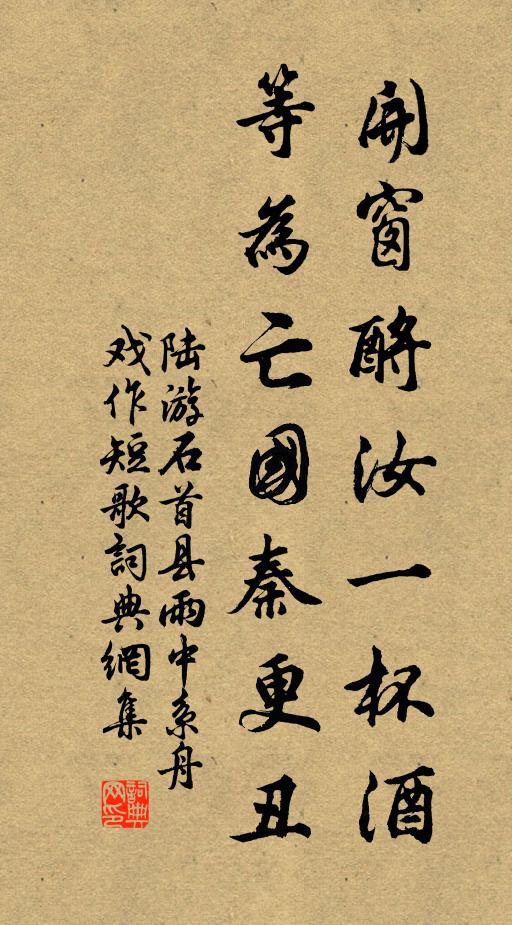 開窗酹汝一杯酒
等為亡國秦更丑
陆游石首县雨中系舟
戏作短歌詞典網集
詞典网印